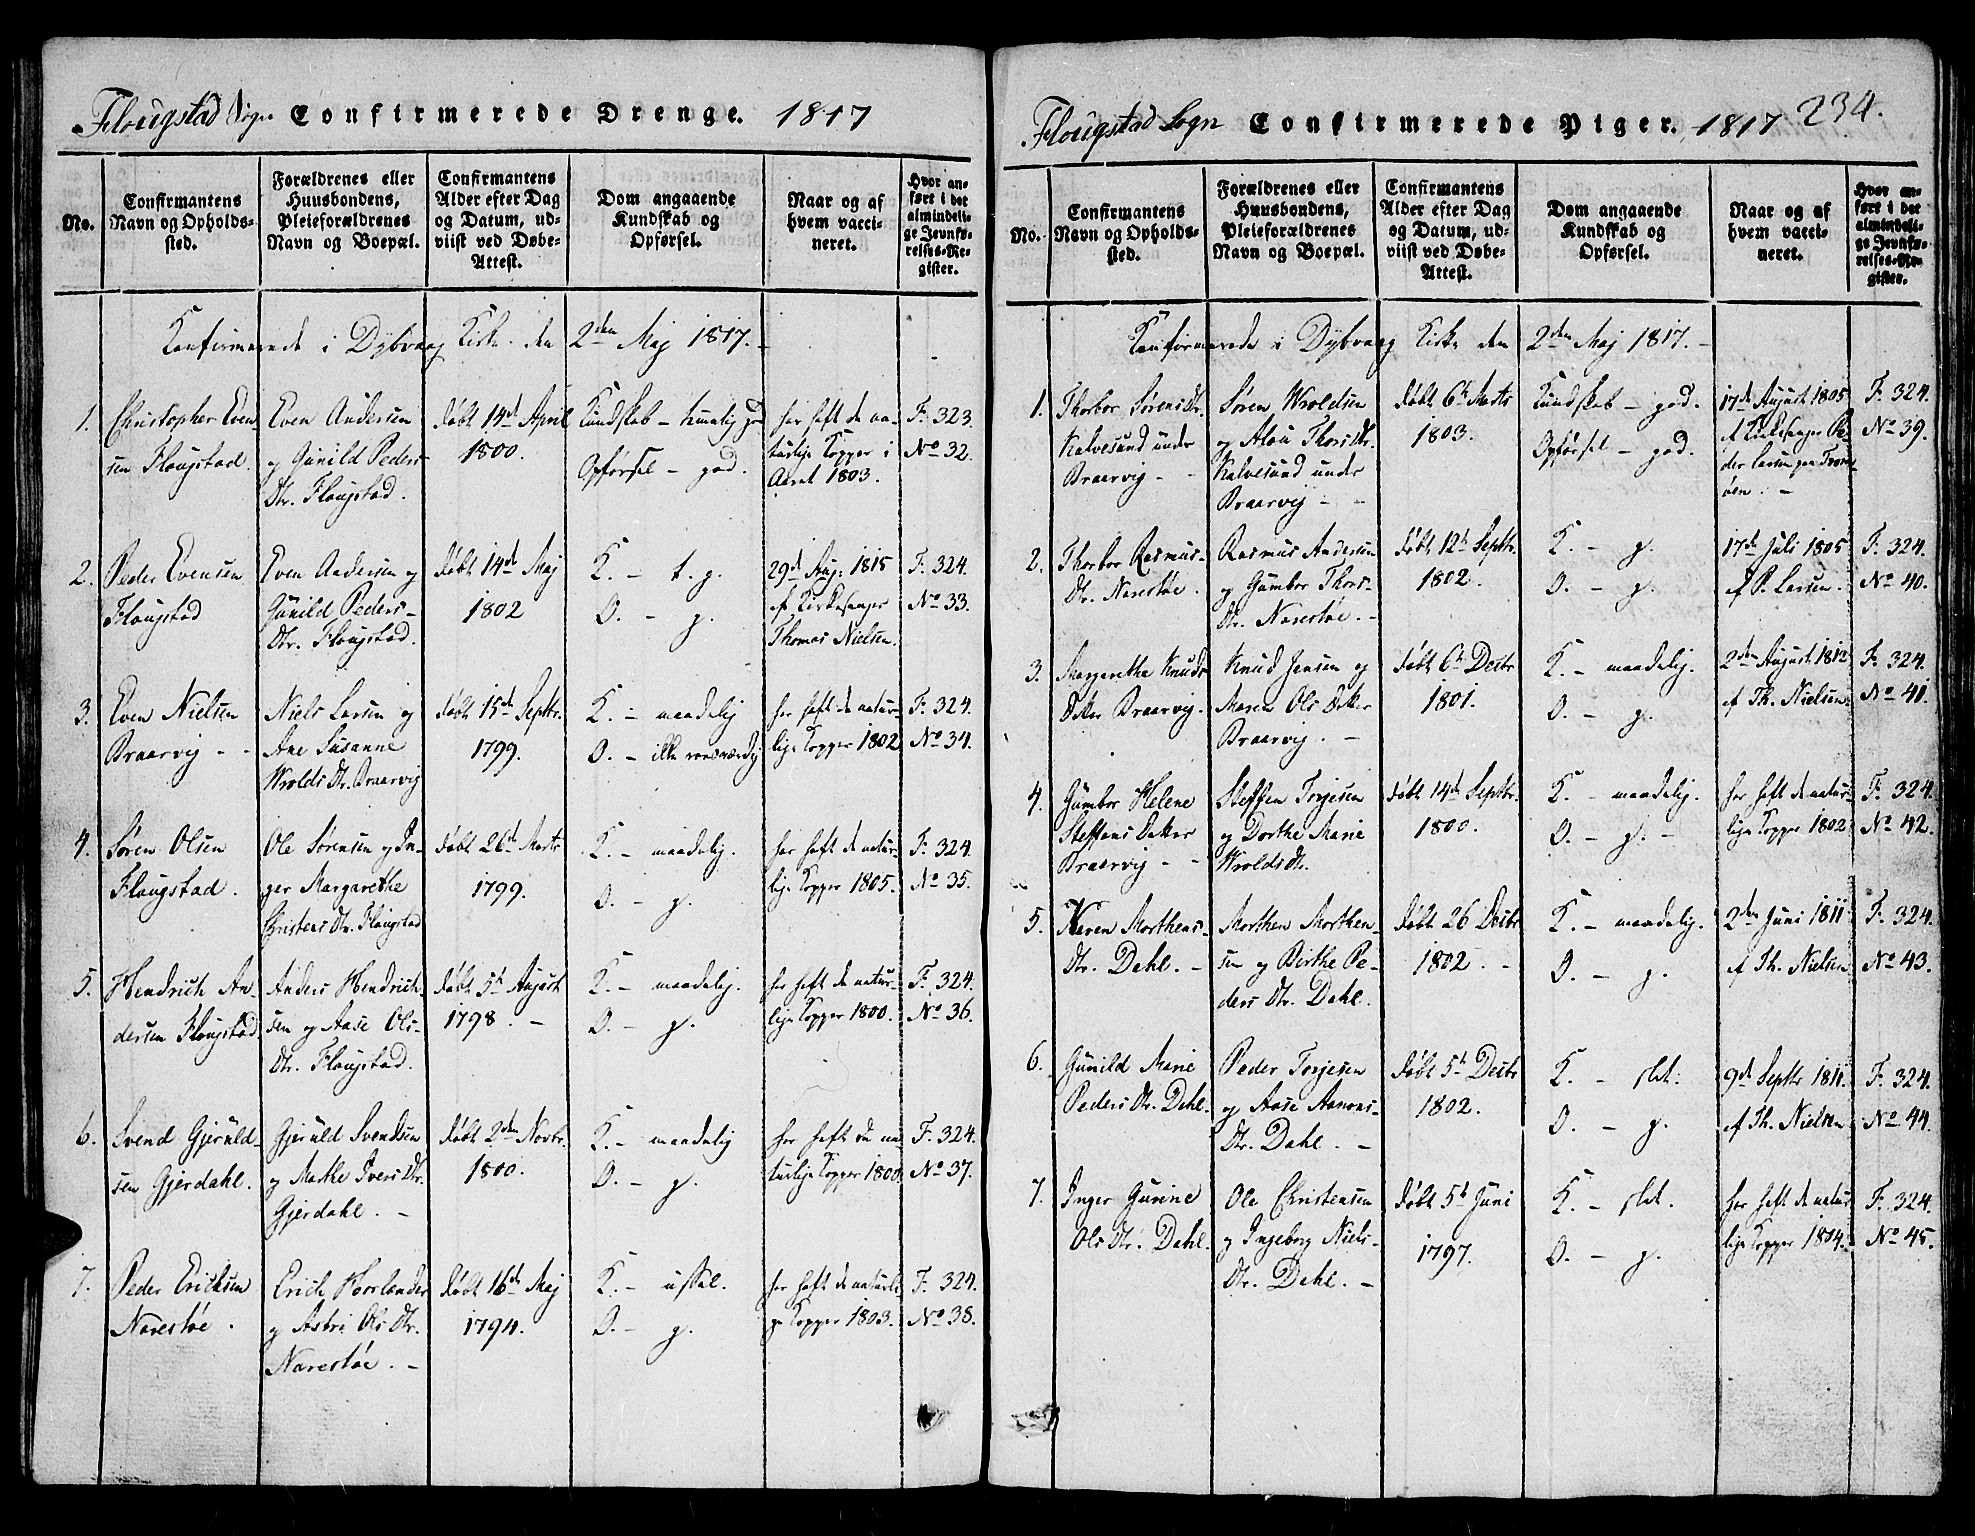 Flougstad Sogn Confirmerede Drenge. 1817
No.
Confirmantens
Navn og Opholds-
sted.
Forældrenes eller
Huusbondens,
Pleieforældrenes
Navn og Boepæl.
Confirmantens
Alder efter Dag
og Datum, ud-
viist ved Døbe-
Attest.
Dom angaaende
Kundskab og
Opførsel.
Naar og af
hvem vacci-
neret.
Hvor an-
ført i det
almindeli-
ge Jevnfø-
relses-Re-
gister.
Confirmerede i Dybvaag Kirke den 2den Maj 1817. -
1.
Christopher Even-
sen Flougstad.
Even Andersen
og Gunild Peders-
Dtr. Flougstad.
døbt 14d April
1800.
Kundskab - temelig god
Opførsel - god.
har haft de na-
turlige Kopper i
Aaret 1803.
F. 323.
No 32.
2.
Peder Evensen
Flougstad
Even Andersen og
Gunild Peders-
Dtr. Flougstad.
døbt 14d Maj
1802
K. - t. g.
O. - g.
29d Aug: 1815
af Kirkesanger
Thomas Nielsen.
F. 324.
No 33.
3.
Even Nielsen
Braarvig - -
Niels Larsen og
Ane Susanne
Wrolds Dtr. Braarvig
døbt 15d Septbr.
1799.
K. - maadelig
O. - ikke
har haft de natur-
lige Kopper 1802
F. 324.
No 34.
4.
Søren Olsen
Flougstad.
Ole Sørensen og In-
ger Margarethe
Christens Dtr. Flougstad
døbt 26d Marts
1799.
K. - maadelig.
O. - g.
har haft de natur-
lige Kopper 1805.
F. 324.
No 35.
5.
Hendrich An-
dersen Flougstad.
Anders Hendrich-
sen og Aase Ols-
Dtr. Flougstad.
døbt 5t August
1798. -
K. - maadelig.
O. - g.
har haft de natur-
lige Kopper 1800.
F. 324.
No 36.
6.
Svend Gjeruld-
sen Gjerdahl.
Gjeruld Svendsen
og Marthe Ivers Dtr.
Gjerdahl. -
døbt 2den Novbr.
1800.
K. - maadelig
O. - g.
har haft de na-
turlige Kopper 1800.
F. 324.
No 37.
7.
Peder Erichsen
Narestøe.
Erich Horlander
og Astri Ols Dtr.
Narestøe. -
døbt 16d Maj
1794.
K. - ussel.
O. - g.
har haft de naturli-
ge Kopper 1803.
F. 324.
No 38.
Flougstad Sogn Confirmerede Piger. 1817
234.
No.
Confirmantens
Navn og Opholds-
sted.
Forældrenes eller
Huusbondens,
Pleieforældrenes
Navn og Boepæl.
Confirmantens
Alder efter Dag
og Datum, ud-
viist ved Døbe-
Attest.
Dom angaaende
Kundskab og
Opførsel.
Naar og af
hvem vacci-
neret.
Hvor an-
ført i det
almindeli-
ge Jevnfø-
relses-Re-
gister.
Confirmerede i Dybvaag Kirke den 2den Maj 1817. -
1.
Thorbor Sørens Dtr.
Kalvesund under
Braarvig - -
Søren Wroldsen
og Thors Dtr.
Kalvesund under
Braarvig - -
døbt 6t Marts
1803.
Kundskab - god.
Opførsel - god.
17de August 1805
af Kirkesanger Pe-
der Larsen paa Trom-
øen. -
F. 324.
No 39.
2.
Thorbor Rasmus-
Dtr. Narestøe.
Rasmus Andersen
og Gumbor Thors-
Dtr. Narestøe. -
døbt 12t Septbr.
1802.
K. - g.
O. - g.
17de Juli 1805
af P. Larsen.
F. 324.
No 40.
3.
Margrethe Knuds
Datter Braarvig.
Knud Jensen og
Maren Ols Datter
Braarvig. -
døbt 6t Decbr
1801.
K. - maadelig.
O. - g.
2den August 1812
af Th. Nielsen.
F. 324.
No 41.
4.
Gumbor Helene
Steffens Datter
Braarvig - -
Steffen Torjesen
og Dorthe Marie
Wrolds Dtr.
døbt 14d Septbr.
1800.
K. - maadelig.
O. - g. -
har haft de natur-
lige Kopper 1802
F. 324.
No 42.
5.
Karen Morthens-
Dtr. Dahl. -
Morthen Morthen-
sen og Birthe Pe-
ders Dtr. Dahl.
døbt 26 Decbr
1802. -
K. - maadelig.
O. - g.
2den Juni 1811
af Th. Nielsen
F. 324.
No 43.
6.
Gunild Marie
Peders Dtr. Dahl.
Peder Torjesen
og Aase Aanons-
Dtr. Dahl. -
døbt 5t Decbr
1802.
K. - slet.
O. - g.
9d Septbr 1811.
af Th. Nielsen
F. 324.
No 44.
7.
Inger Gurine
Ols Dtr. Dahl.
Ole Christensen
og Ingeborg Niels-
Dtr. Dahl. -
døbt 5t Juni
1797.
K. - slet.
O. - g.
har haft de natur-
lige Kopper 1804.
F. 324.
No 45.